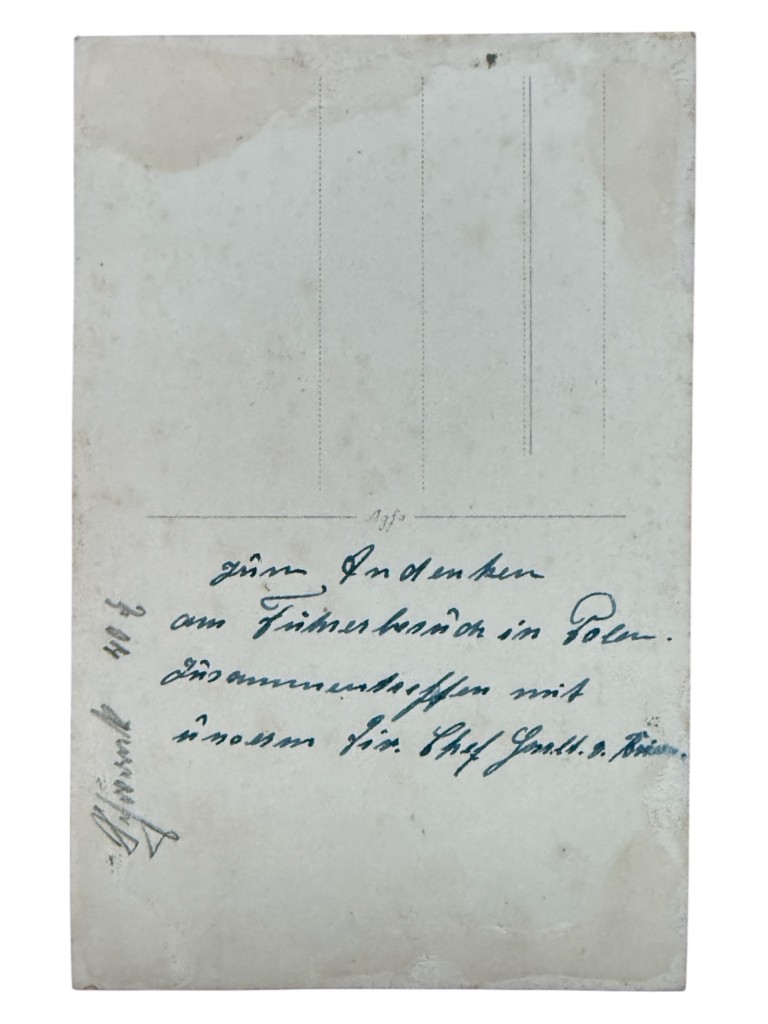 Agfa
zum Andenken
am Führerbesuch in Polen.
Zusammentreffen mit
unserm Div. Chef